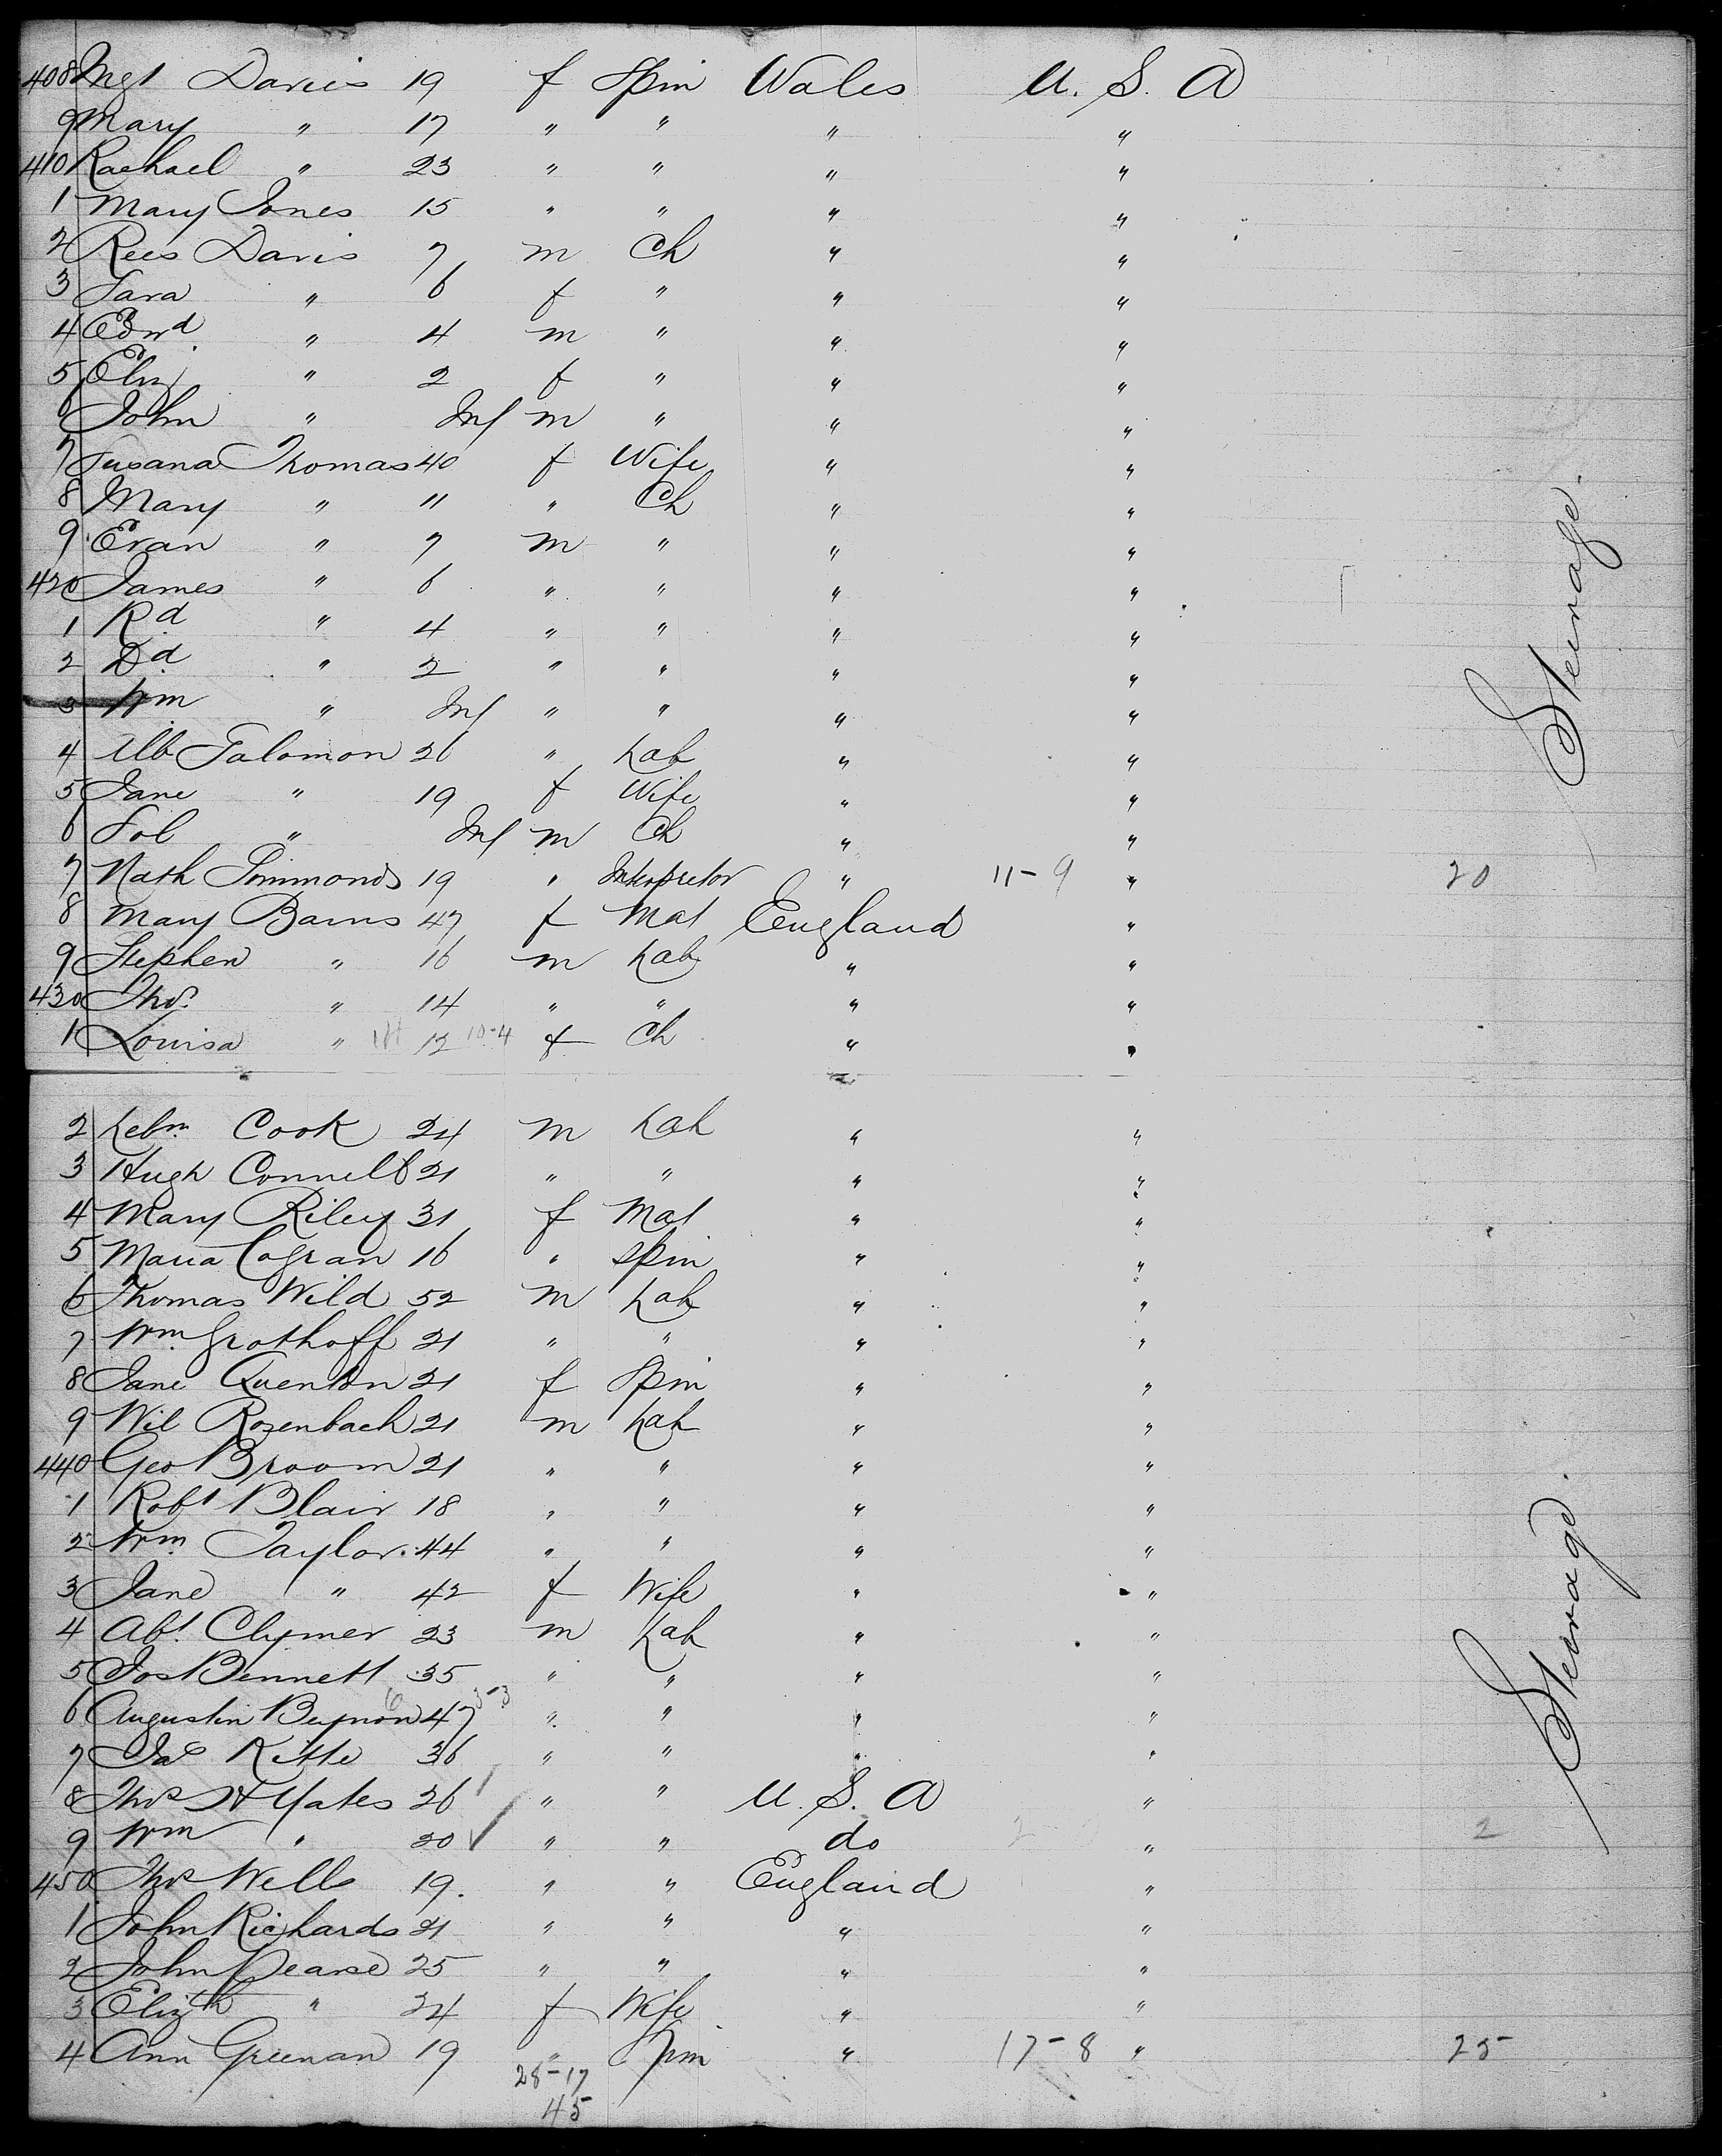 408 Mgt Davies 19 f Spin Wales U. S. A
9 Mary " 17 " " " "
410 Rachael " 23 " " " "
1 Mary Jones 15 " " " "
2 Rees Davis 7 m Ch " "
3 Sara " 6 f " " "
4 Edwd. " 4 m " " "
5 Eliz " 2 f " " "
6 John " Inf m " " "
7 Susana Thomas 40 f Wife " "
8 Mary " 11 " Ch " "
9 Evan " 7 m " " "
420 James " 6 " " " "
1 Rd " 4 " " " "
2 Dd " 2 " " " "
3 Wm " Inf " " " "
4 Alb Salomon 26 " Lab " "
5 Jane " 19 f Wife " "
6 Sol " Inf m Ch " "
7 Nath Simmonds 19 " Interpretor " 11-9 " 20
8 Mary Barns 47 f Mat England "
9 Stephen " 16 m Lab " "
430 Thos. " 14 " " " "
1 Louisa " 12 10-4 f Ch " "
2 Cook 24 m Lab " "
3 Hugh Connell 21 " " " "
4 Mary Riley 31 f Mat " "
5 Maria Cogran 16 " Spin " "
6 Thomas Wild 52 m Lab " "
7 Wm. Grothoff 21 " " " "
8 Jane Quenton 21 f Spin " "
9 Wil Rosenbach 21 m Lab " "
440 Geo Broom 21 " " " "
1 Robt Blair 18 " " " "
2 Wm. Taylor 44 " " " "
3 Jane " 42 f Wife " "
4 Abt. Clymer 23 m Lab " "
5 Jos Bennett 35 " " " "
6 Augustin Beynon 47 3-3 " " " "
7 Jas Kitte 36 " " " "
8 Thos H Yates 26 " " U. S. A "
9 Wm " 20 ✓ " " do " 2
450 Thos Wells 19. " " England "
1 John Richards 21 " " " "
2 John Pearse 25 " " " "
3 Elizth " 24 f Wife " "
4 Ann Greenan 19 " Spin " 17-8 " 25
28-17
45
Steerage.
Steerage.